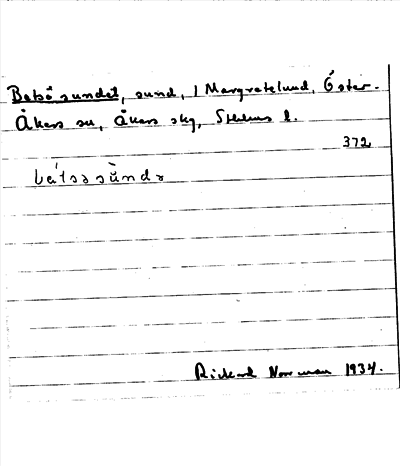 Batsösundet, sund, 1 Margretelund, Öster-
Åkers sn, Åkers skg, Sthlms l.
372
bátsasùnda
Rickard Norrman 1934.